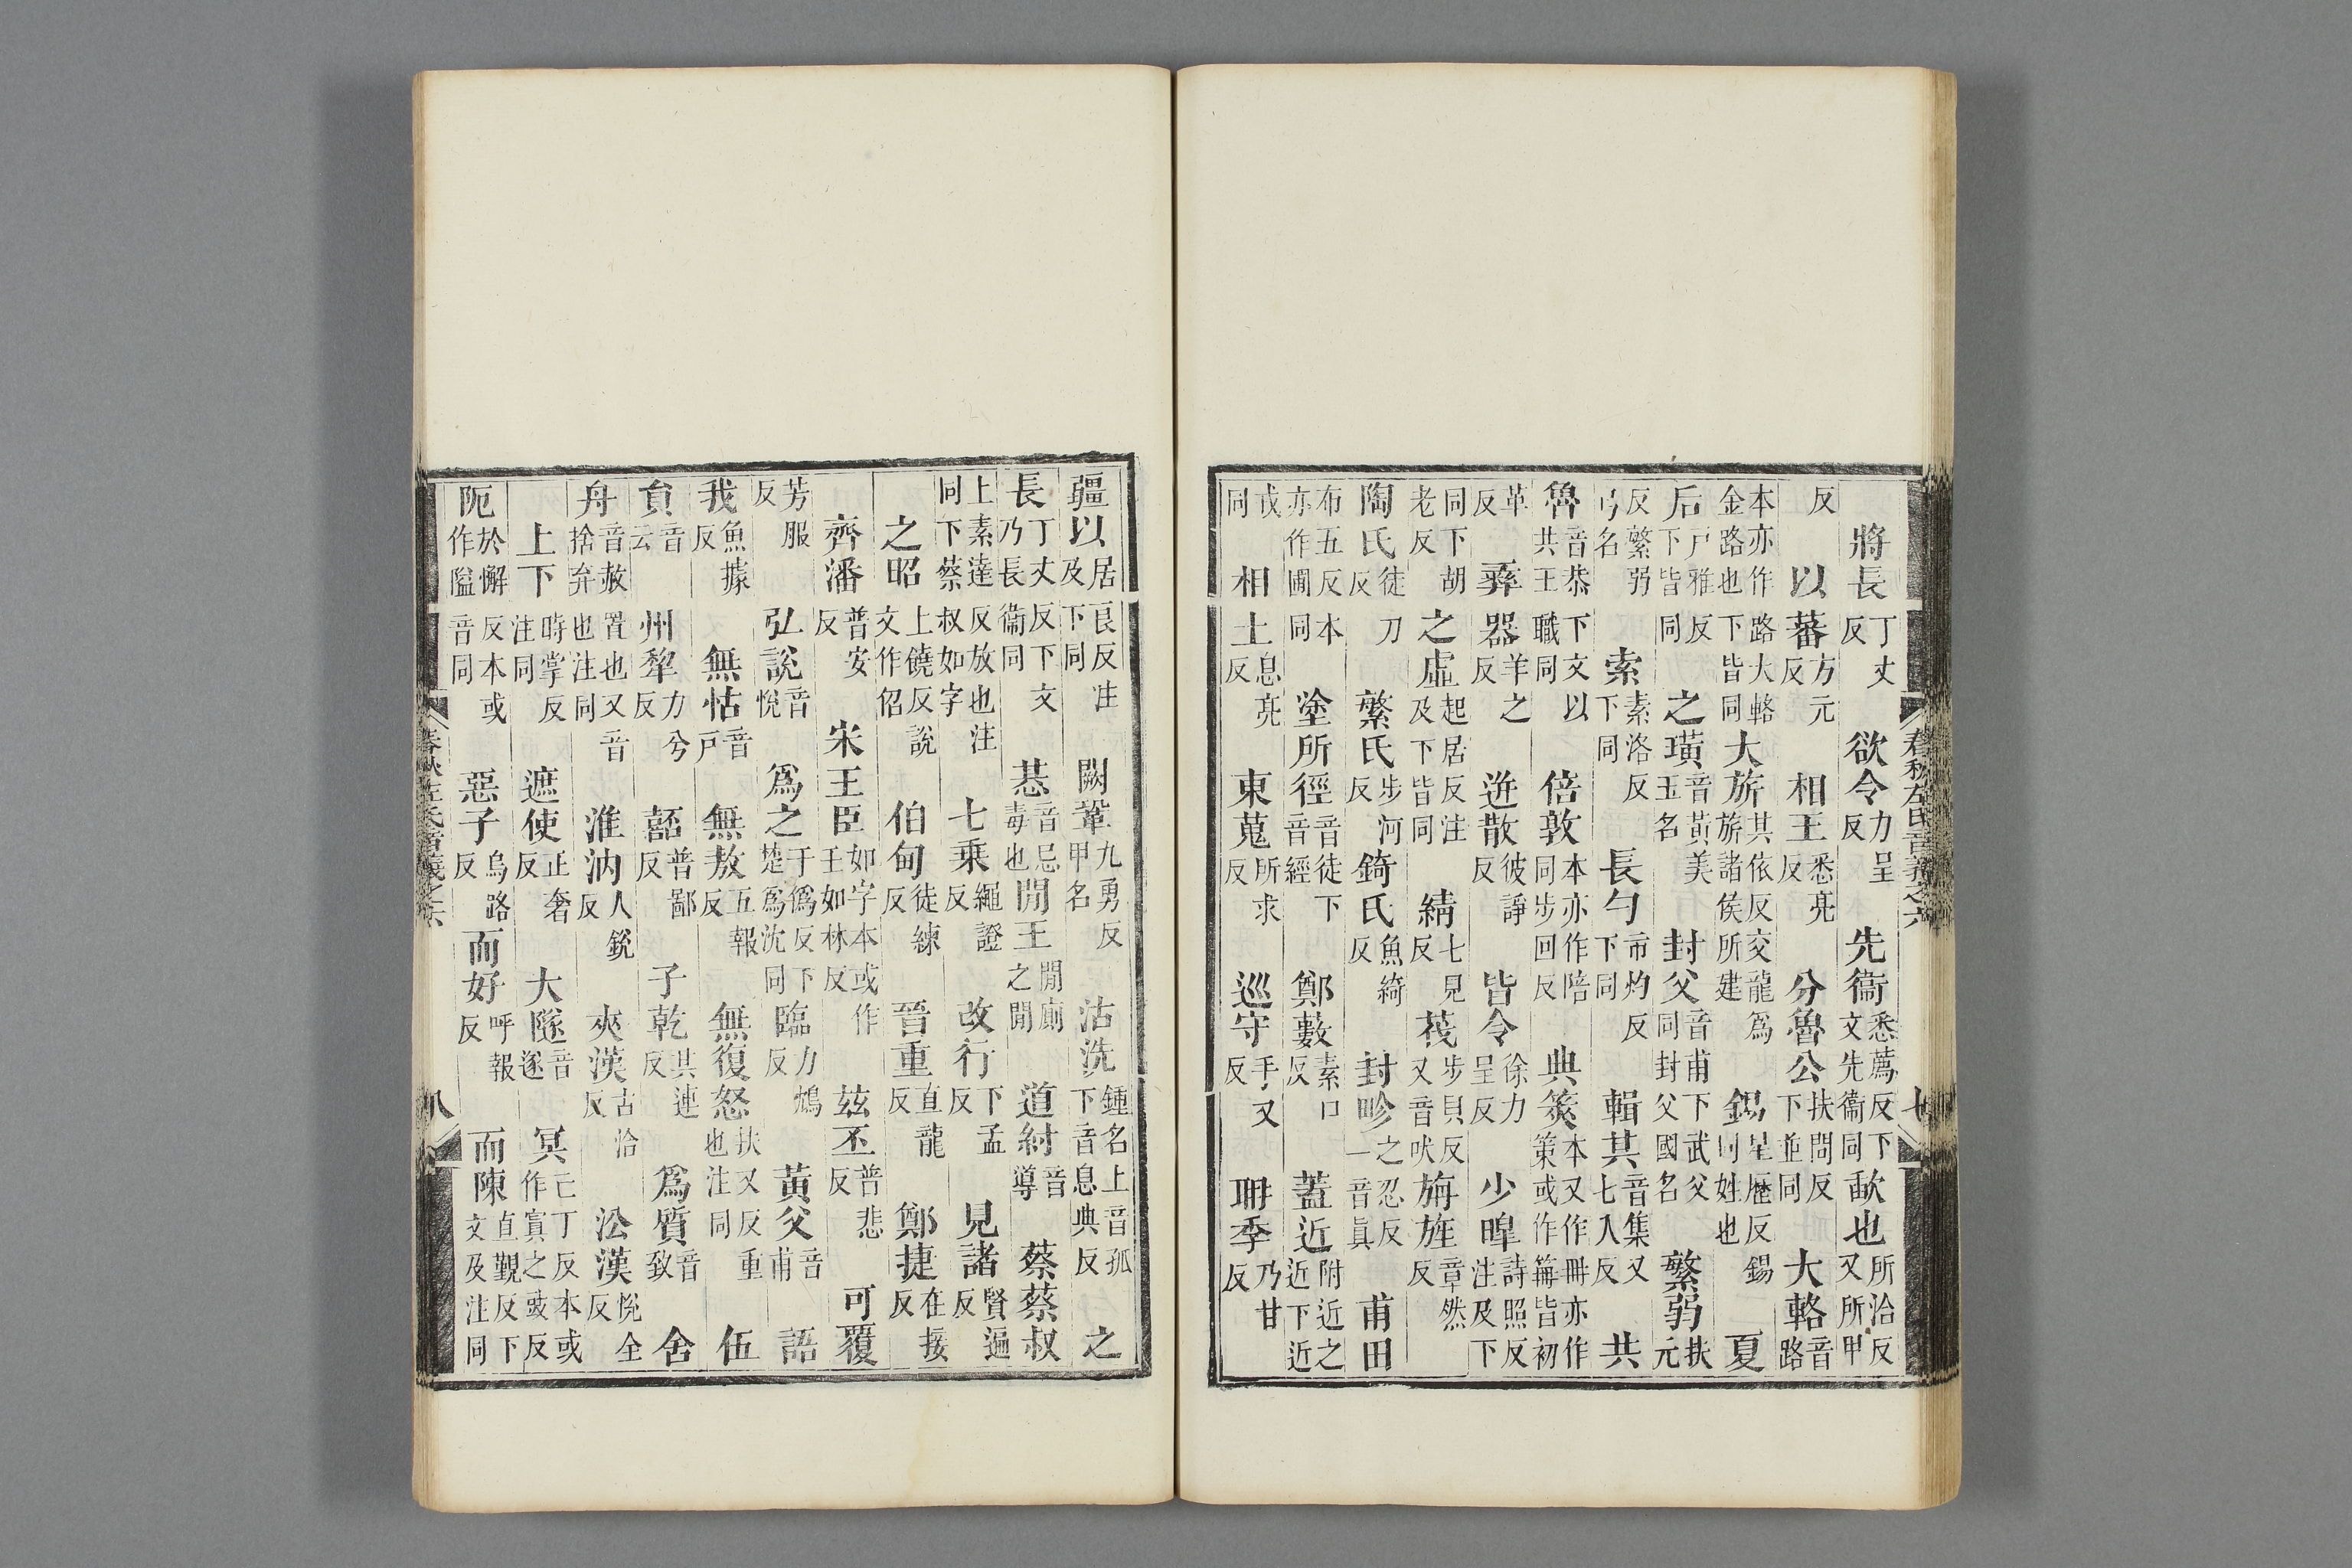 春秋左氏音義之六　七
將長丁丈反欲令力呈反先衞悉薦反下文先衞同歃也所洽反又所甲
反以蕃方元反相王悉亮反分魯公扶問反下並同大輅音路
本亦作路大輅金路也下皆同大旂其依反交龍爲旂諸侯所建鍚星歷反錫同姓也夏
后戸雅反下皆同之璜音黃美玉名封父音甫下武父同封父國名繁弱扶元
反繁弱弓名索素洛反下同長勺市灼反下同輯其音集又七入反共
魯音恭下文以共王職同倍敦本亦作陪同步回反典筴本又作冊亦作策或作篇皆初
革反彝器羊之反逬散彼諍反皆令徐力呈反少皥詩照反注及下
同下胡老反之虛起居反注及下皆同綪七見反茷步貝反又音吠旃旌章然反
陶氏徒刀反繁氏步河反錡氏魚綺反封畛之忍反一音眞甫田
布五反本亦作圃同塗所徑音徒下音經鄭藪素口反蓋近附近之近下近
戎同相土息亮反東蒐所求反巡守手又反聃季乃甘反
疆以居良反注及下同闕鞏九勇反甲名沽洗鍾名上音孤下音息典反之
長丁丈反下文乃長衞同惎音忌毒也閒王閒廁之閒道紂音導蔡蔡叔
上素達反放也注同下蔡叔如字七乗繩證反改行下孟反見諸賢遍反
之昭上饒反說文作佋伯甸徒練反晉重直龍反鄭捷在接反
齊潘普安反宋王臣如字本或作壬如林反茲丕普悲反可覆
芳服反弘說音悅爲之于僞反下楚爲沈同臨力鴆反黃父音甫語
我魚據反無怙音戸無敖五報反無復怒扶又反重也注同伍
貟音云州犂力兮反嚭普鄙反子乾其連反爲質音致舍
舟音赦置也又音捨弃也注同淮汭人銳反夾漢古洽反㳂漢悅全反
上下時掌反注同遮使正奢反大隧音遂冥亡丁反本或作寘之豉反
阨於懈反本或作隘音同惡子烏路反而好呼報反而陳直覲反下文及注同
春秋左氏音義之六　八